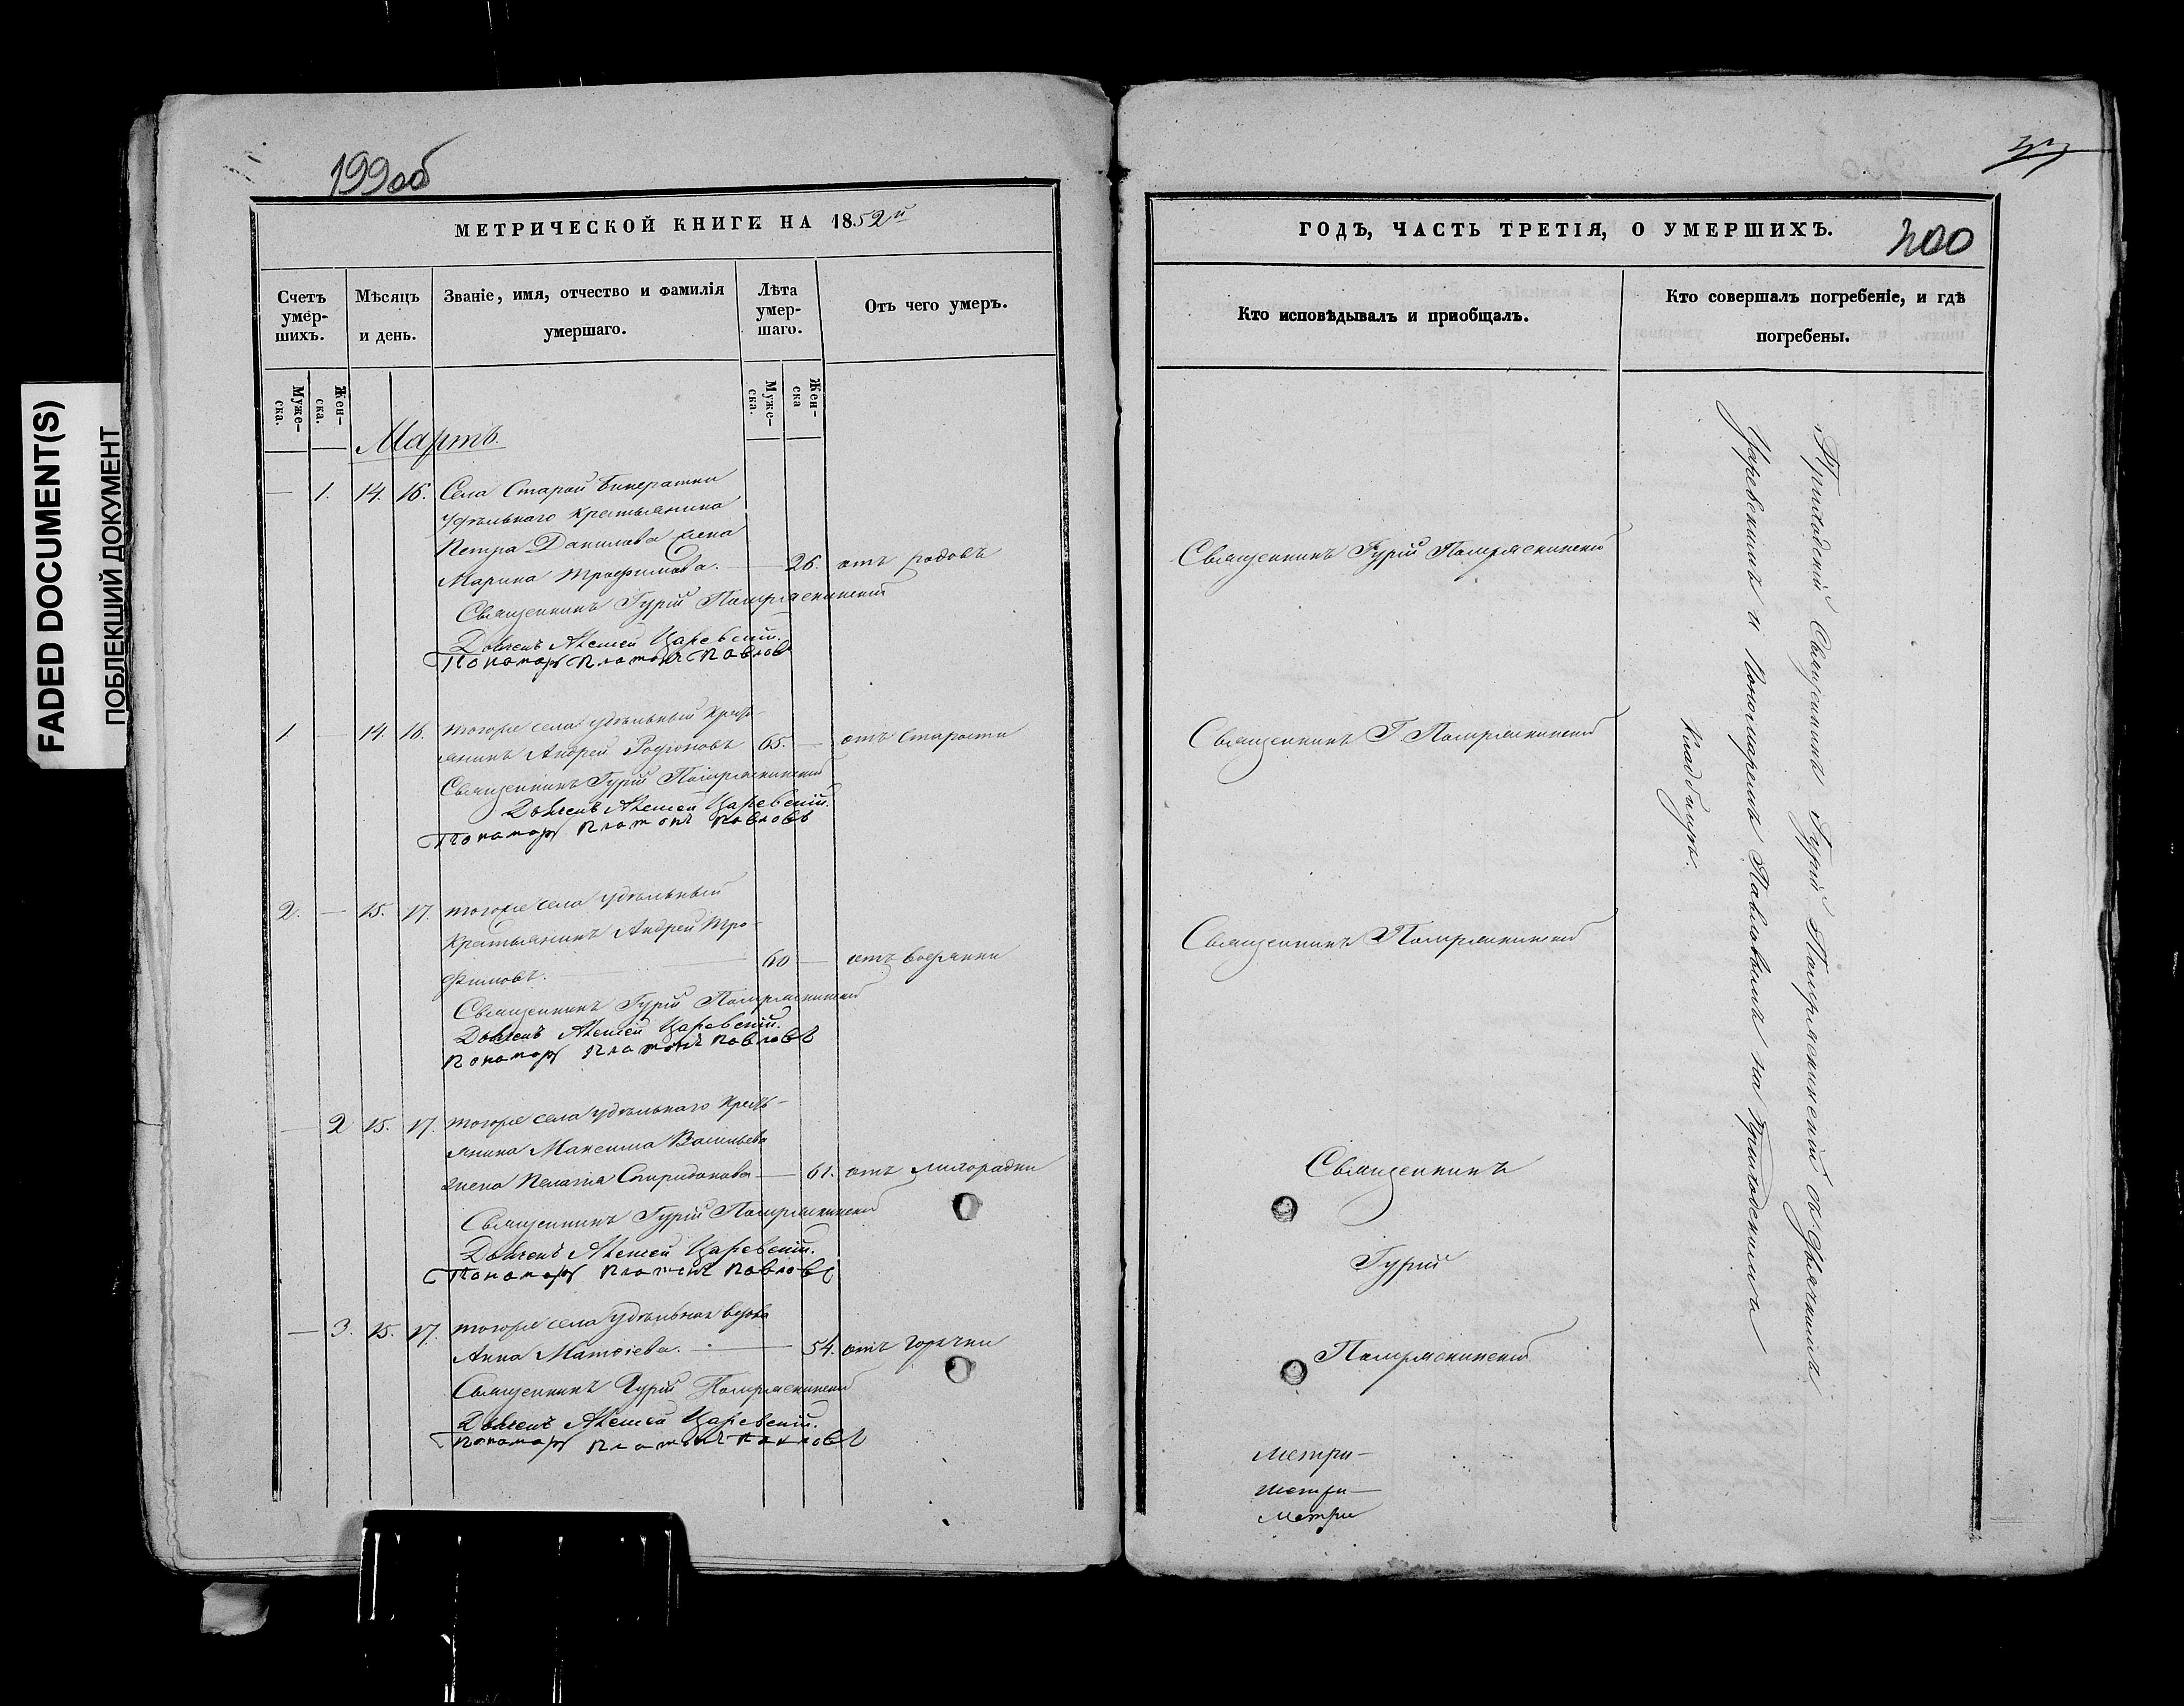 199об
МЕТРИЧЕСКОЙ КНИГЕ НА 1852й
Счетъ умер-шихъ.
Мѣсяцъ и день.
Званіе, имя, отчество и фамилія умершаго.
Лѣта умер-шаго.
Отъ чего умеръ.
Муже-ска.
Жен-ска.
Муже-ска.
Жен-ска
Мартъ.
— 1. 14. 16. Села Старой
удѣльнаго крестьянина
Петра Данилова жена
Марина Трофимова. — 26. отъ родовъ
Священникъ Гурій
Дьяченъ Алексей Царевскій.
Пономарь Платонъ Павловъ
1 — 14. 16. Тогоже села удѣльный кресть-
янинъ Андрей Родіоновъ 65. — отъ старости
Священникъ Гурій
Дьяченъ Алексей Царевскій.
Пономарь Платонъ Павловъ
2. — 15. 17. тогоже села удѣльный
крестьянинъ Андрей Тро-
фимовъ. — 60 — отъ водянки
Священникъ Гурій
Дьяченъ Алексей Царевскій.
Пономарь Платонъ Павловъ
— 2 15. 17. тогоже села удѣльнаго кресть-
янина Максима Васильева
жена Пелагія Спиридонова — 61. отъ лихорадки
Священникъ Гурій
Дьяченъ Алексей Царевскій.
Пономарь Платонъ Павловъ
— 3. 15. 17. тогоже села удѣльная вдова
Анна Матвіева. — 54. отъ горячки
Священникъ Гурій
Дьяченъ Алексей Царевскій.
Пономарь Платонъ Павловъ
ГОДЪ, ЧАСТЬ ТРЕТІЯ, О УМЕРШИХЪ.
200
Кто исповѣдывалъ и пріобщалъ.
Кто совершалъ погребеніе, и гдѣ погребены.
Священникъ Гурій
Священникъ Г.
Священникъ
Священникъ
Гурій
Метри-
Метри-
Метри
Приходскій Священникъ Гурій съ Дьячкомъ
Царевскимъ и Пономаремъ Павловымъ на Приходскомъ
кладбищѣ.
FADED DOCUMENT(S)
ПОБЛЕКШИЙ ДОКУМЕНТ